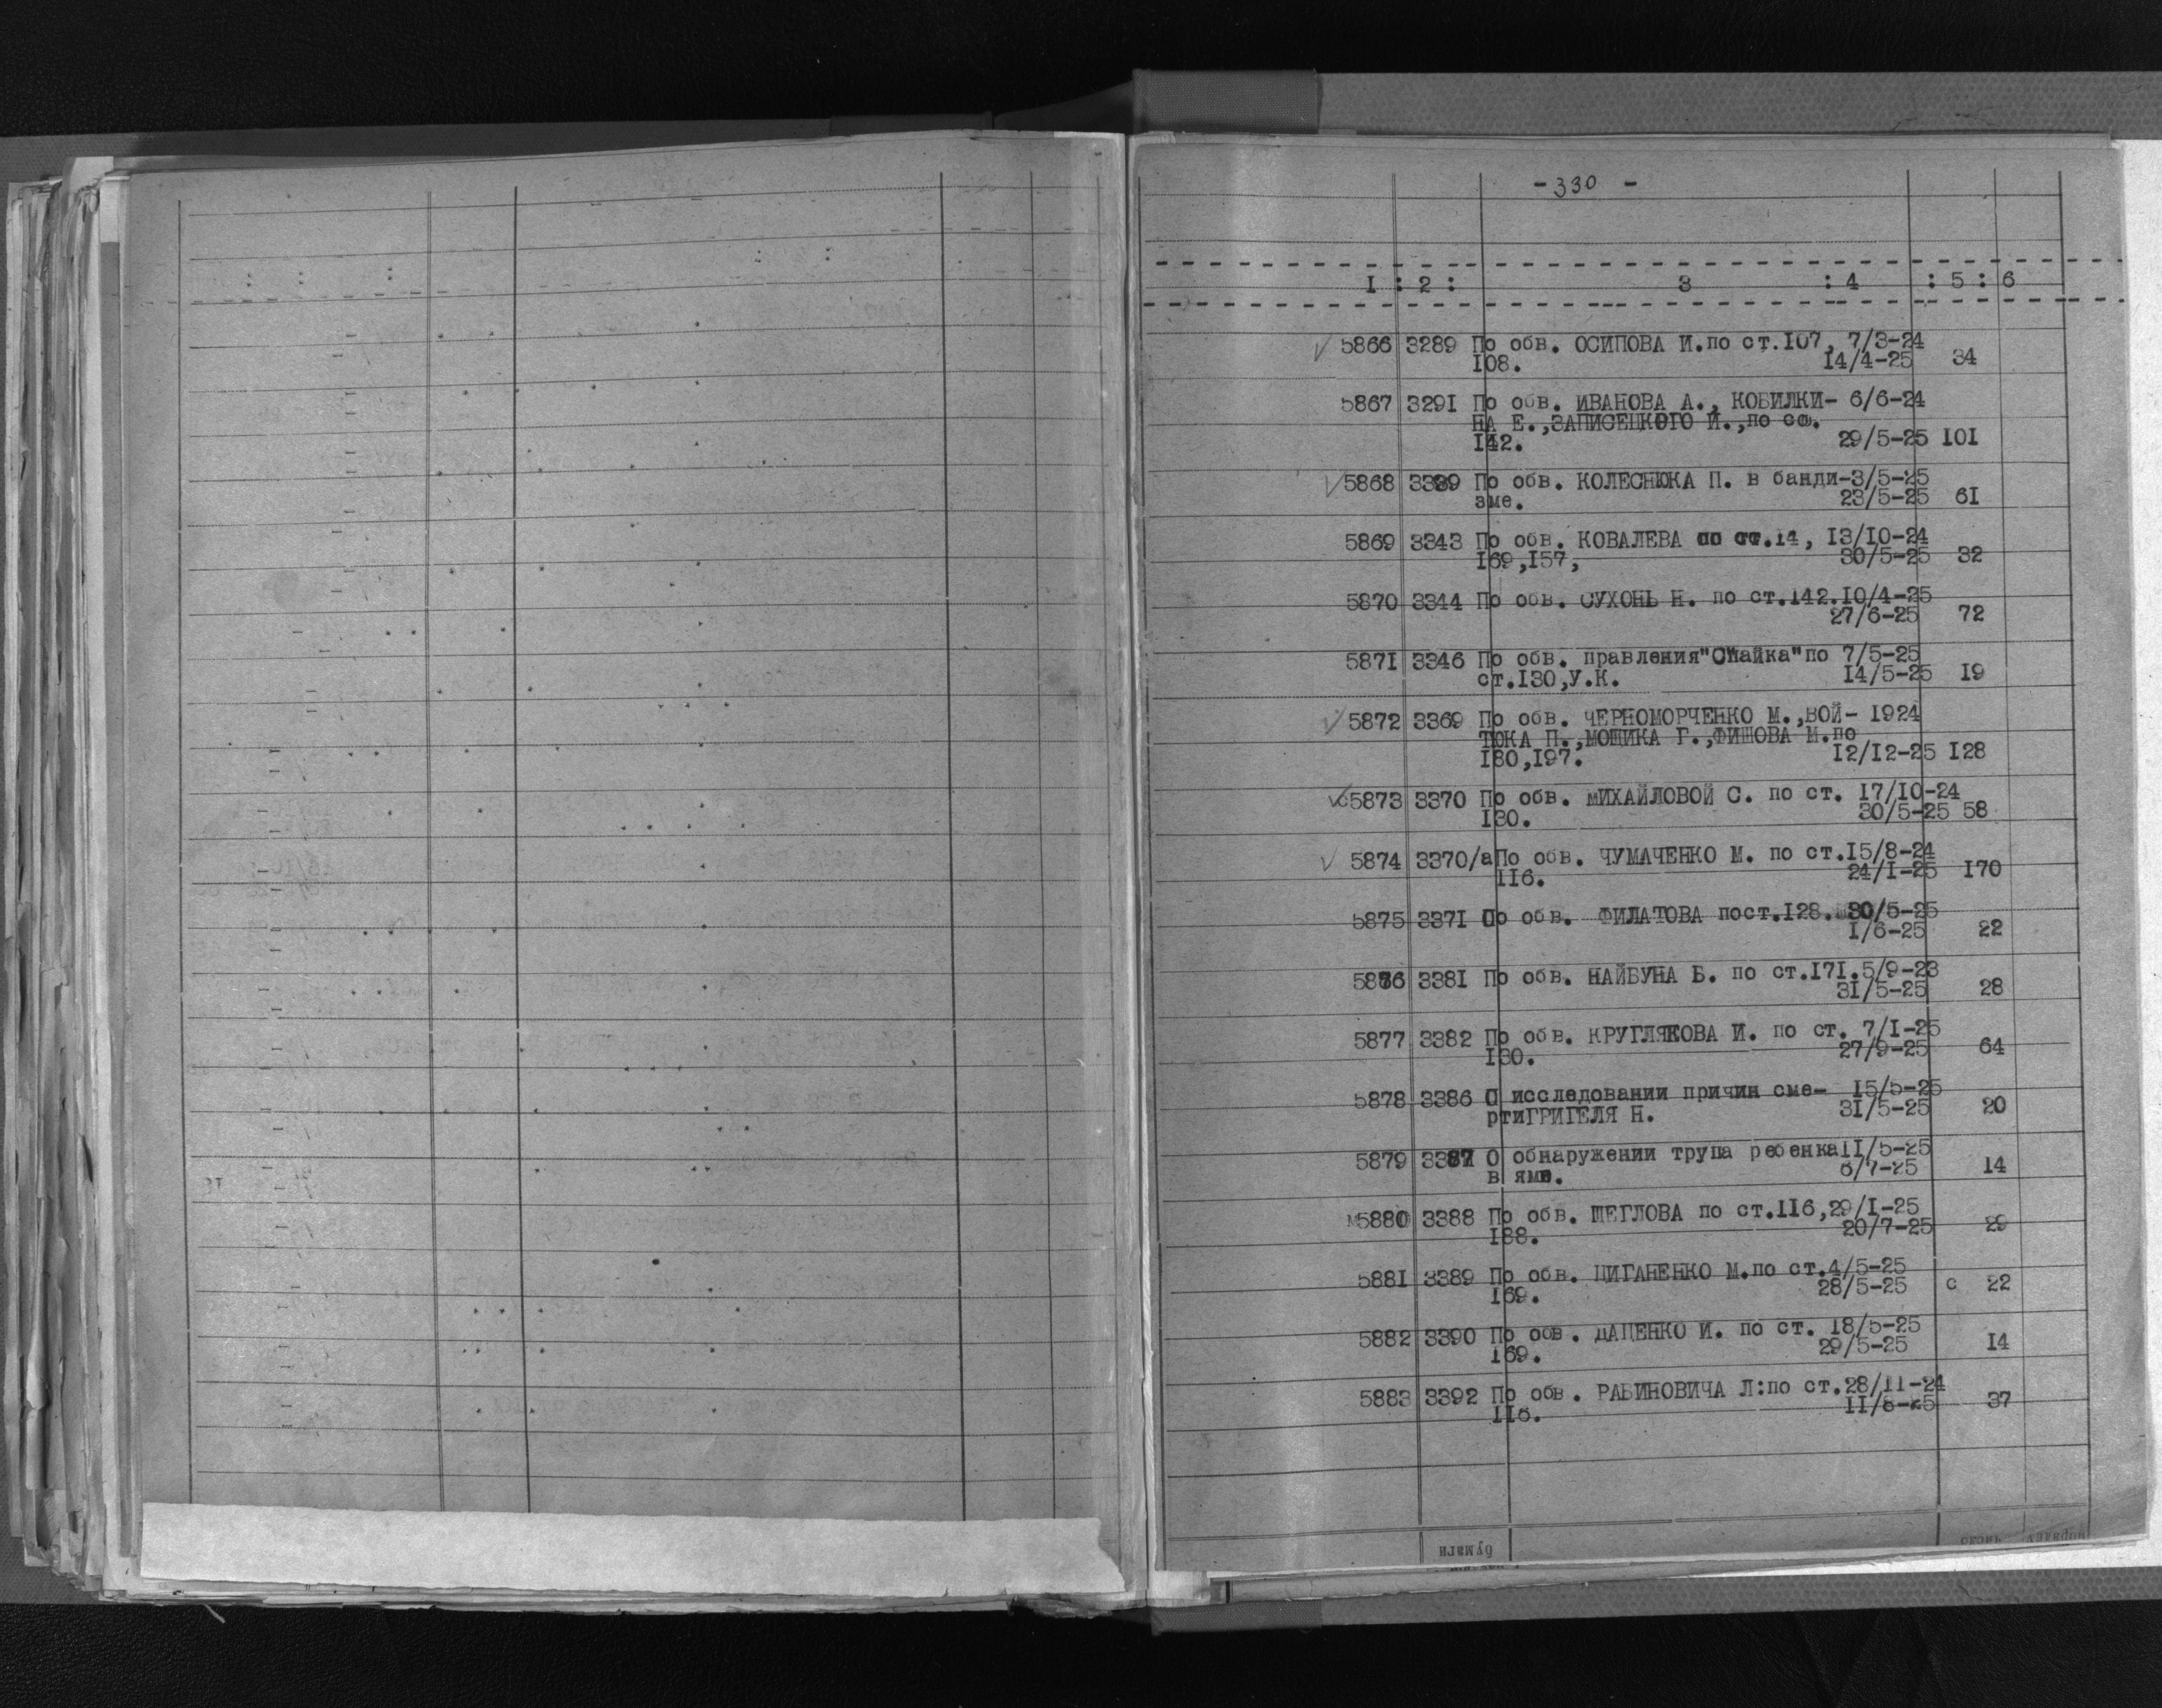 - 330 -
I : 2 : 3 : 4 : 5 : 6
5866 3289 По обв. ОСИПОВА И.по ст.107, 7/3-24
108. 14/4-25 34
5867 3291 По обв. ИВАНОВА А., КОБИЛКИ- 6/6-24
НА Е.,ЗАПИСЕЦКОГО И.,по ст.
142. 29/5-25 101
5868 3339 По обв. КОЛЕСНЮКА П. в банди-3/5-25
зме. 23/5-25 61
5869 3343 По обв. КОВАЛЕВА по ст.14, 13/10-24
169,157, 30/5-25 32
5870 3344 По обв. СУХОНЬ Н. по ст.142.10/4-25
27/6-25 72
5871 3346 По обв. правления "Спайка"по 7/5-25
ст.130,У.К. 14/5-25 19
5872 3369 По обв. ЧЕРНОМОРЧЕНКО М.,ВОЙ- 1924
ТЮКА П.,МОЩИКА Г.,ФИШОВА М.по
180,197. 12/12-25 128
5873 3370 По обв. МИХАЙЛОВОЙ С. по ст. 17/10-24
130. 30/5-25 58
5874 3370/а По обв. ЧУМАЧЕНКО М. по ст.15/8-24
116. 24/1-25 170
5875 3371 По обв. ФИЛАТОВА пост.128. 30/5-25
1/6-25 22
5876 3381 По обв. НАЙБУНА Б. по ст.171.5/9-23
31/5-25 28
5877 3382 По обв. КРУГЛЯКОВА И. по ст. 7/1-25
130. 27/9-25 64
5878 3386 О исследовании причин сме- 15/5-25
ртиГРИГЕЛЯ Н. 31/5-25 20
5879 3387 О обнаружении трупа ребенка11/5-25
в яме. 6/7-25 14
5880 3388 По обв. ЩЕГЛОВА по ст.116,29/1-25
188. 20/7-25 29
5881 3389 По обв. ЦИГАНЕНКО М.по ст.4/5-25
169. 28/5-25 с 22
5882 3390 По обв. ДАЦЕНКО И. по ст. 18/5-25
169. 29/5-25 14
5883 3392 По обв. РАБИНОВИЧА Л:по ст.28/11-24
116. 11/8-25 37
бумаги